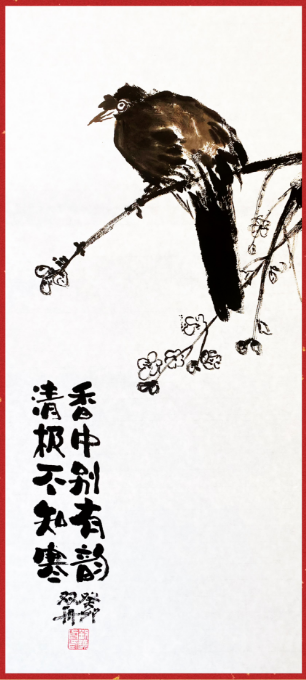 香中别有韵
清极不知寒
癸卯